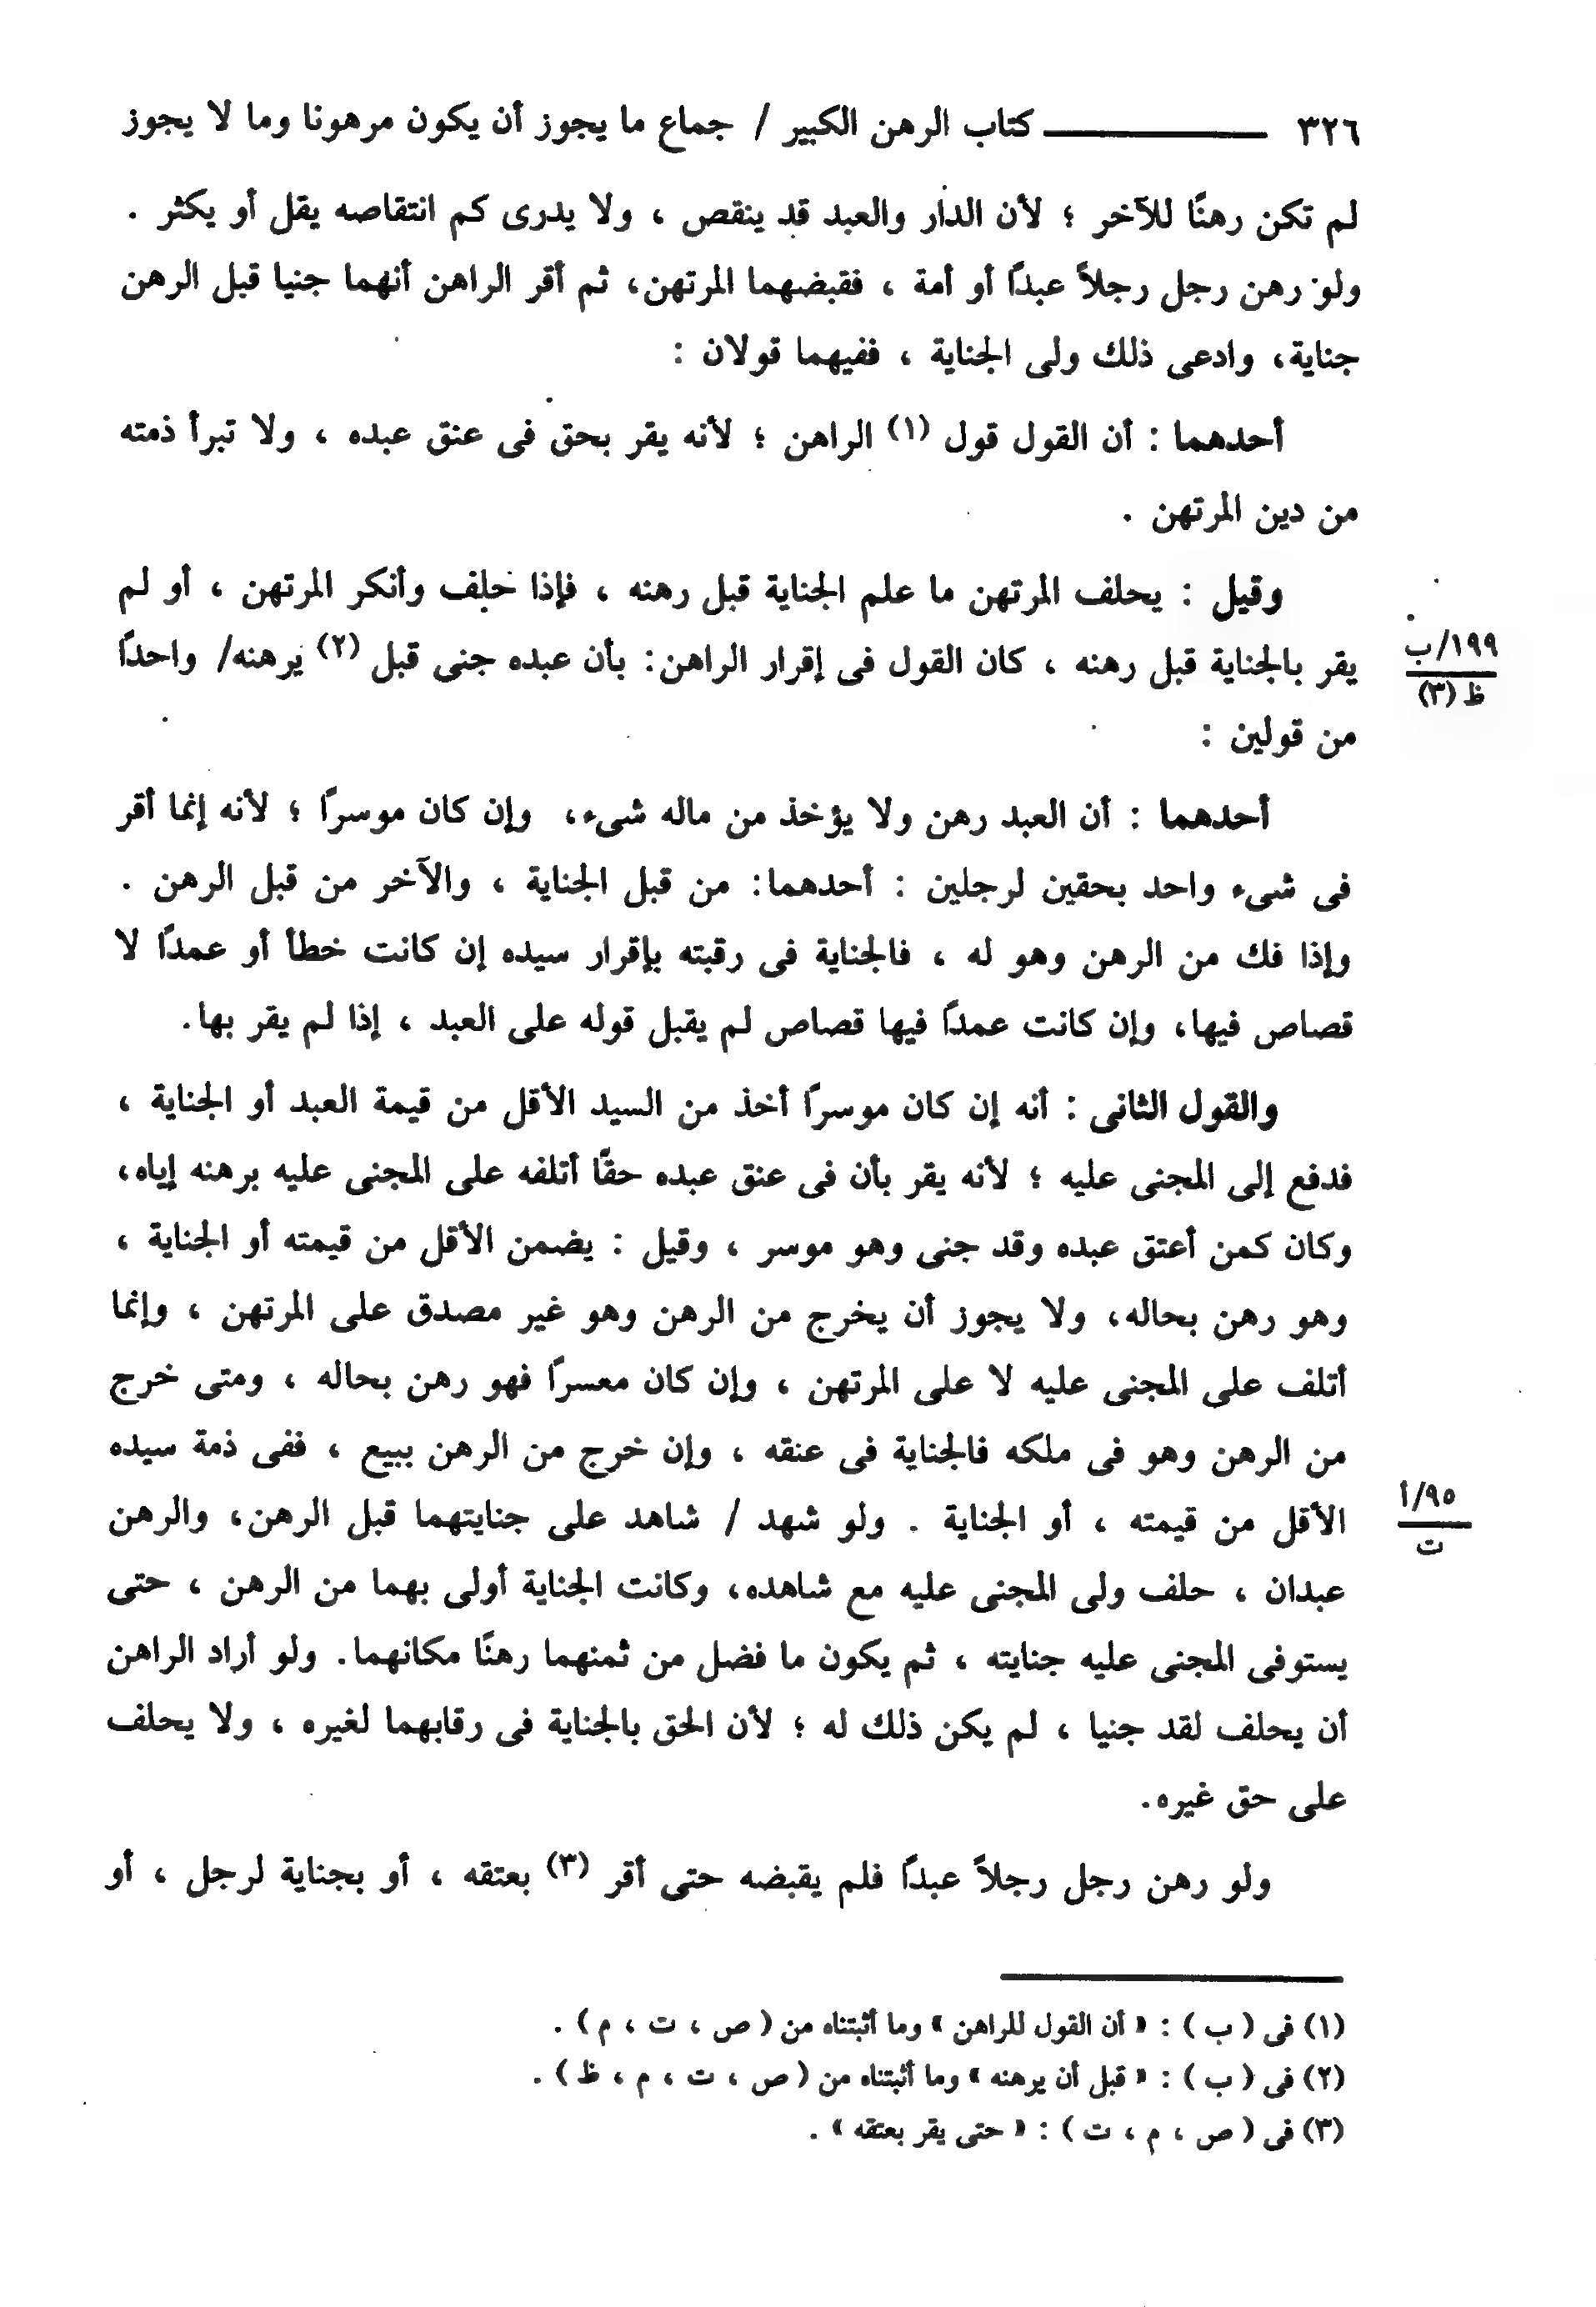 ٣٢٦ ـــــــــــــــ كتاب الرهن الكبير / جماع ما يجوز أن يكون مرهونا وما لا يجوز
لم تكن رهنًا للآخر ؛ لأن الدار والعبد قد ينقص ، ولا يدرى كم انتقاصه يقل أو يكثر .
ولو رهن رجل رجلاً عبدًا أو أمة ، فقبضهما المرتهن، ثم أقر الراهن أنهما جنيا قبل الرهن
جناية، وادعى ذلك ولى الجناية ، ففيهما قولان :
أحدهما : أن القول قول (١) الراهن ؛ لأنه يقر بحق فى عنق عبده ، ولا تبرأ ذمته
من دين المرتهن .
وقيل : يحلف المرتهن ما علم الجناية قبل رهنه ، فإذا حلف وأنكر المرتهن ، أو لم
يقر بالجناية قبل رهنه ، كان القول فى إقرار الراهن: بأن عبده جنى قبل (٢) يرهنه/ واحدًا
١٩٩/ب
ظ (٣)
من قولين :
أحدهما : أن العبد رهن ولا يؤخذ من ماله شىء، وإن كان موسرًا ؛ لأنه إنما أقر
فى شىء واحد بحقين لرجلين : أحدهما: من قبل الجناية ، والآخر من قبل الرهن .
وإذا فك من الرهن وهو له ، فالجناية فى رقبته بإقرار سيده إن كانت خطأ أو عمدًا لا
قصاص فيها، وإن كانت عمدًا فيها قصاص لم يقبل قوله على العبد ، إذا لم يقر بها.
والقول الثانى : أنه إن كان موسرًا أخذ من السيد الأقل من قيمة العبد أو الجناية ،
فدفع إلى المجنى عليه ؛ لأنه يقر بأن فى عنق عبده حقًا أتلفه على المجنى عليه برهنه إياه،
وكان كمن أعتق عبده وقد جنى وهو موسر ، وقيل : يضمن الأقل من قيمته أو الجناية ،
وهو رهن بحاله، ولا يجوز أن يخرج من الرهن وهو غير مصدق على المرتهن ، وإنما
أتلف على المجنى عليه لا على المرتهن ، وإن كان معسرًا فهو رهن بحاله ، ومتى خرج
من الرهن وهو فى ملكه فالجناية فى عنقه ، وإن خرج من الرهن ببيع ، ففى ذمة سيده
الأقل من قيمته ، أو الجناية . ولو شهد / شاهد على جنايتهما قبل الرهن، والرهن
٩٥/أ
ت
عبدان ، حلف ولى المجنى عليه مع شاهده، وكانت الجناية أولى بهما من الرهن ، حتى
يستوفى المجنى عليه جنايته ، ثم يكون ما فضل من ثمنهما رهنًا مكانهما. ولو أراد الراهن
أن يحلف لقد جنيا ، لم يكن ذلك له ؛ لأن الحق بالجناية فى رقابهما لغيره ، ولا يحلف
على حق غيره.
ولو رهن رجل رجلاً عبدًا فلم يقبضه حتى أقر (٣) بعتقه ، أو بجناية لرجل ، أو
(١) فى ( ب ) : « أن القول للراهن » وما أثبتناه من ( ص ، ت ، م ) .
(٢) فى ( ب ) : « قبل أن يرهنه » وما أثبتناه من ( ص ، ت ، م ، ظ ) .
(٣) فى ( ص ، م ، ت ) : « حتى يقر بعتقه » .